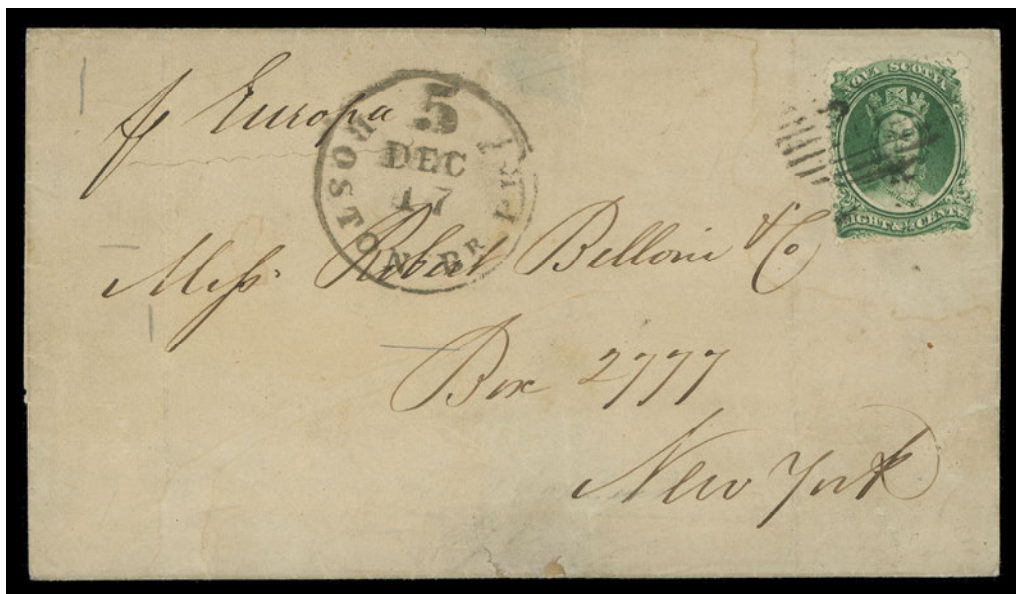 p Europa
5
DEC
17
BOSTON BR. PKT
NOVA SCOTIA
EIGHT & ½ CENTS
Messrs Robert Belloni & Co
Box 2777
New York